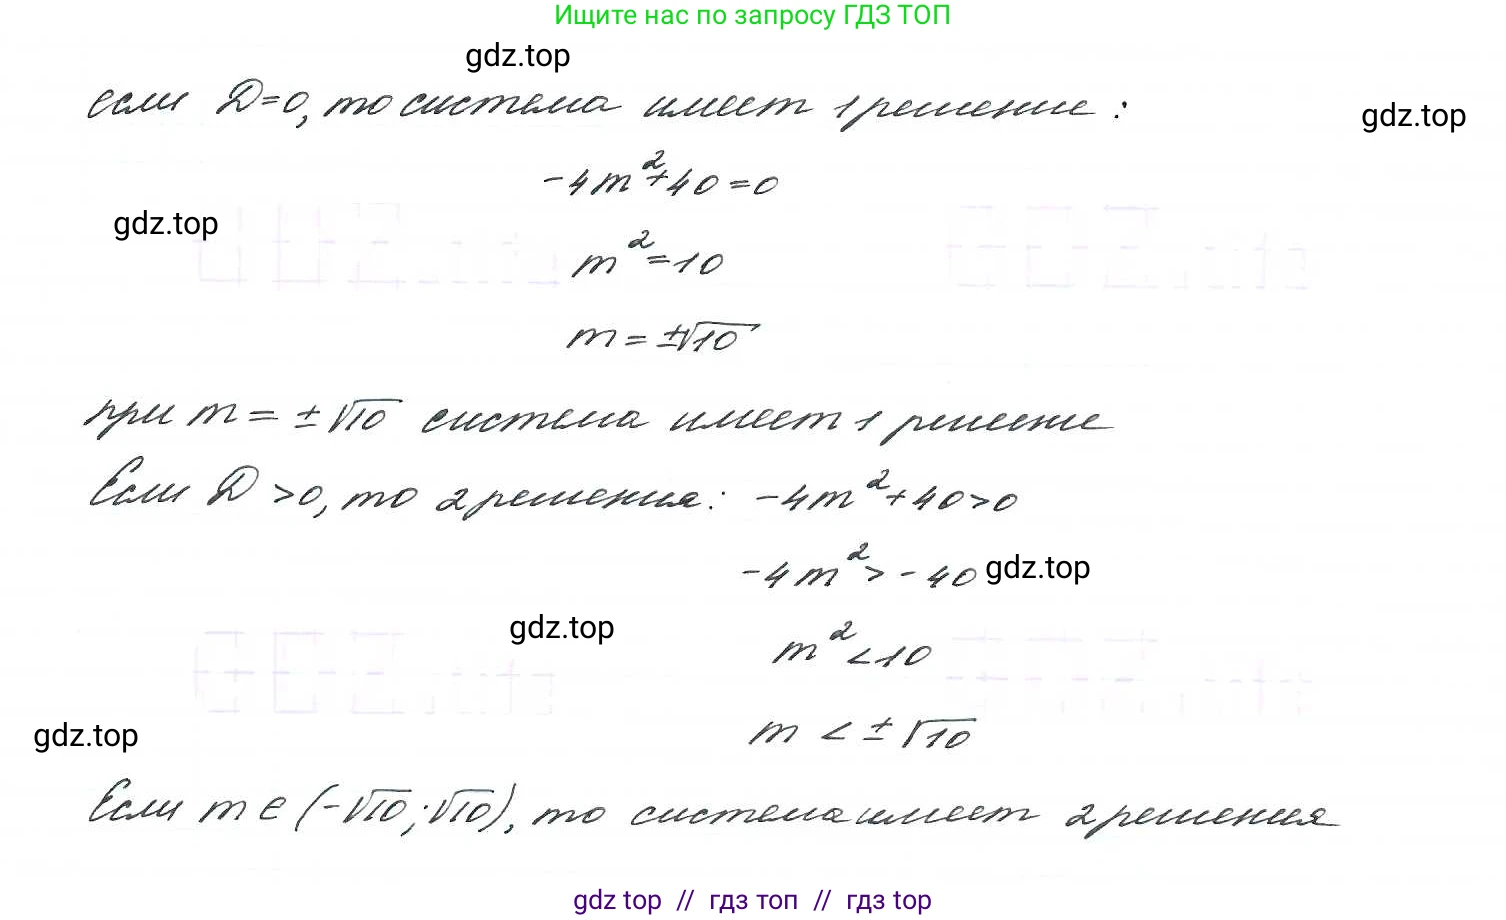 Ищите нас по запросу ГДЗ ТОП
gdz.top
если D=0, то система имеет 1 решение:
gdz.top
-4m²+40=0
gdz.top
m²=10
m=±√10
при m=±√10 система имеет 1 решение
Если D>0, то 2 решения: -4m²+40>0
-4m²>-40 gdz.top
gdz.top
m²<10
gdz.top
m<±√10
Если m∈(-√10;√10), то система имеет 2 решения
gdz top // гдз топ // гдз top